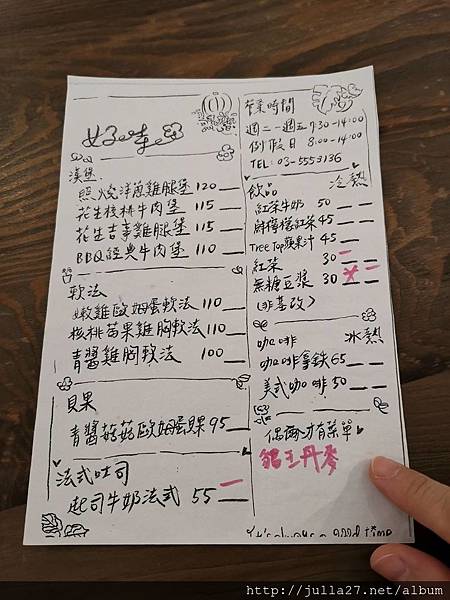 好味
漢堡
照燒洋蔥雞腿堡 120
花生核桃牛肉堡 115
花生吉事雞腿堡 115
BBQ經典牛肉堡 110
軟法
嫩雞歐姆蛋軟法 110
核桃莓果雞胸軟法 110
青醬雞胸軟法 100
貝果
青醬菇菇歐姆蛋貝果 95
法式吐司
起司牛奶法式 55
營業時間
週二~週五 7:30-14:00
例假日 8:00-14:00
TEL: 03-5553136
飲品 冷 熱
紅茶牛奶 50
檸檬紅茶 45
Tree Top蘋果汁 45
紅茶 30
無糖豆漿 30
(非基改)
咖啡 冰 熱
咖啡拿鐵 65
美式咖啡 50
偶爾才有菜單
貓王丹麥
It's always a good time
http://julla27.net/album